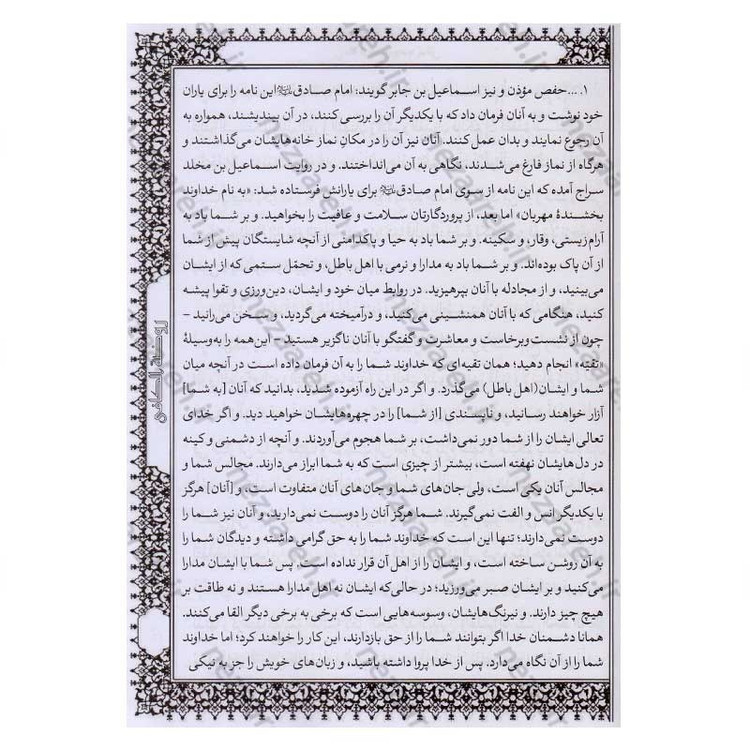 ۱. ...حفص مؤذن و نیز اسماعیل بن جابر گویند: امام صادق این نامه را برای یاران
خود نوشت و به آنان فرمان داد که با یکدیگر آن را بررسی کنند، در آن بیندیشند، همواره به
آن رجوع نمایند و بدان عمل کنند. آنان نیز آن را در مکانِ نماز خانه‌هایشان می‌گذاشتند و
هرگاه از نماز فارغ می‌شدند، نگاهی به آن می‌انداختند. و در روایت اسماعیل بن مخلد
سراج آمده که این نامه از سوی امام صادق برای یارانش فرستاده شد: «به نام خداوند
بخشندهٔ مهربان» اما بعد، از پروردگارتان سلامت و عافیت را بخواهید. و بر شما باد به
آرام‌زیستی، وقار، و سکینه. و بر شما باد به حیا و پاکدامنی از آنچه شایستگان پیش از شما
از آن پاک بوده‌اند. و بر شما باد به مدارا و نرمی با اهل باطل، و تحمّل ستمی که از ایشان
می‌بینید، و از مجادله با آنان بپرهیزید. در روابط میان خود و ایشان، دین‌ورزی و تقوا پیشه
کنید، هنگامی که با آنان همنشینی می‌کنید، و درآمیخته می‌گردید، و سخن می‌رانید -
چون از نشست‌وبرخاست و معاشرت و گفتگو با آنان ناگزیر هستید - این‌همه را به‌وسیلهٔ
«تقیّه» انجام دهید؛ همان تقیه‌ای که خداوند شما را به آن فرمان داده است در آنچه میان
شما و ایشان (اهل باطل) می‌گذرد. و اگر در این راه آزموده شدید، بدانید که آنان [به شما]
آزار خواهند رسانید، و ناپسندی [از شما] را در چهره‌هایشان خواهید دید. و اگر خدای
تعالی ایشان را از شما دور نمی‌داشت، بر شما هجوم می‌آوردند. و آنچه از دشمنی و کینه
در دل‌هایشان نهفته است، بیشتر از چیزی است که به شما ابراز می‌دارند. مجالس شما و
مجالس آنان یکی است، ولی جان‌های شما و جان‌های آنان متفاوت است، و [آنان] هرگز
با یکدیگر انس و الفت نمی‌گیرند. شما هرگز آنان را دوست نمی‌دارید، و آنان نیز شما را
دوست نمی‌دارند؛ تنها این است که خداوند شما را به حق گرامی داشته و دیدگان شما را
به آن روشن ساخته است، و ایشان را از اهل آن قرار نداده است. پس شما با ایشان مدارا
می‌کنید و بر ایشان صبر می‌ورزید؛ در حالی‌که ایشان نه اهل مدارا هستند و نه طاقت بر
هیچ چیز دارند. و نیرنگ‌هایشان، وسوسه‌هایی است که برخی به برخی دیگر القا می‌کنند.
همانا دشمنان خدا اگر بتوانند شما را از حق بازدارند، این کار را خواهند کرد؛ اما خداوند
شما را از آن نگاه می‌دارد. پس از خدا پروا داشته باشید، و زبان‌های خویش را جز به نیکی
روضة الکافی
nezzareh.ir